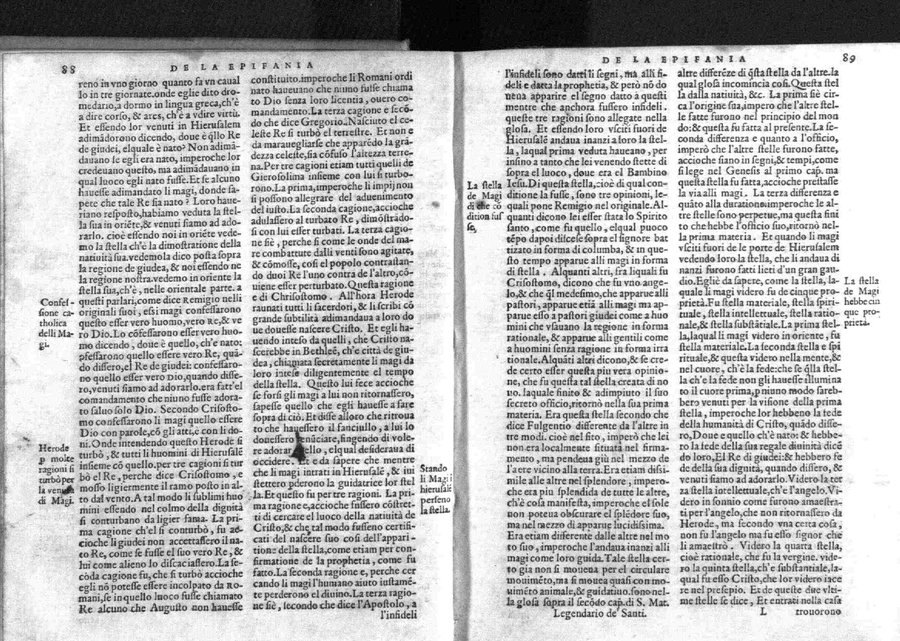 88
DE LA EPIFANIA
reno in vno giorno quanto fa vn caual
lo in tre giornate. onde eglie dito dro-
medario, a dormo in lingua greca, ch'è
a dire corso, & ares, ch'è a vdire virtù.
Et essendo lor venuti in Hierusalem
adimãdorono dicendo, doue è q̃llo Re
de giudei, elquale è nato? Non adimã-
dauano le egli era nato, imperoche lor
credeuano questo, ma adimãdauano in
qual luoco egli nato fusse. Et se alcuno
hauesse adimandato li magi, donde sa-
pete che tale Re sia nato? Loro haue-
riano resposto, habiamo veduta la stel-
la sua in oriẽte, & venuti siamo ad ado-
rarlo. cioè essendo noi in oriẽte vede-
mo la stella ch'è la dimostratione della
natiuità sua. vedemola dico posta sopra
la regione de giudea, & noi essendo ne
la regione nostra vedemo in oriente la
stella sua, ch'è, nelle orientale parte. a
questi parlari, come dice Remigio nelli
originali suoi, essi magi confessarono
questo esser vero huomo, vero Re, & ve
ro Dio. Lo cõfessarono esser vero huo-
mo dicendo, doue è quello, ch'e nato:
cõfessarono quello essere vero Re, quã-
do dissero, el Re de giudei: confessaro-
no quello esser vero Dio, quando disse-
ro, venuti siamo ad adorarlo. era fatt'el
comandamento che niuno fusse adora
to saluo solo Dio. Secondo Crisosto-
mo confessarono li magi quello essere
Dio con parole, cõ gli atti, e con li do-
ni. Onde intendendo questo Herode si
turbò, & tutti li huomini di Hierusalẽ
insieme cõ quello. per tre cagioni si tur
bò el Re, perche dice Crisostomo, e
mosso ligiermente il ramo posto in al-
to dal vento. A tal modo li sublimi huo
mini essendo nel colmo della dignità
si conturbano da ligier fama. La pri-
ma cagione ch'el si conturbò, fu ac-
cioche li giudei non accettassero il na-
to Re, come se fusse el suo vero Re, &
lui come alieno lo discaciassero. La se-
cõda cagione fu, che si turbò accioche
egli nõ potesse essere incolpato da Ro-
mani, se in quello luoco fusse chiamato
Re alcuno che Augusto non hauesse
Confes-
sione ca-
tholica
delli Ma-
gi.
Herode
p molte
ragioni si
turbò per
la venuta
di Magi.
constituito. imperoche li Romani ordi
nato haueuano che niuno fusse chiama
to Dio senza loro licentia, ouero co-
mandamento. La terza cagione e secõ-
do che dice Gregorio. Nasciuto el ce-
leste Re si turbò el terrestre. Et non e
da marauegliarse che apparẽdo la grã-
dezza celeste, sia cõfuso l'altezza terre-
na. Per tre cagioni etiam tutti quelli de
Gierosolima insieme con lui si turbo-
rono. La prima, imperoche li impij non
si possono allegrare del aduenimento
del iusto. La seconda cagione, accioche
adulassero al turbato Re, dimostrãdo-
si con lui esser turbati. La terza cagio-
ne si è, perche si come le onde del ma-
re combatture dalli venti sono agitate,
& cõmosse, così el popolo contrastan-
do duoi Re l'uno contra de l'altro, cõ-
uiene esser perturbato. Questa ragione
e di Chrisostomo. All'hora Herode
raunati tutti li sacerdoti, & li scribi cõ
grande subtilità adimandaua a loro do
ue douesse nascere Cristo. Et egli ha-
uendo inteso da quelli, che Cristo na-
scerebbe in Bethleẽ, ch'è città de giu-
dea, chiamata secretamente li magi da
loro intese diligentemente el tempo
della stella. Questo lui fece accioche
se forsi gli magi a lui non ritornassero,
sapesse quello che egli hauesse a fare
sopra di ciò. Et disse alloro che ritroua
to che hauessero il fanciullo, a lui lo
donessero renũciare, fingendo di vole-
re adorar quello, elqual desideraua di
occidere. Et è da sapere che mentre
che li magi intrati in Hierusalẽ, & iui
stettero pderono la guidatrice lor stel
la. Et questo fu per tre ragioni. La pri-
ma ragione e, accioche fussero cõstret-
ti di cercare el luoco della natiuità de
Cristo, & che tal modo fusseno certifi-
cati del nascere suo così dell'appari-
tione della stella, come etiam per con-
firmatione de la prophetia, come fu
fatto. La seconda ragione e, perche cer
cando li magi l'humano aiuto iustamẽ-
te perderono el diuino. La terza ragio-
ne siè, secondo che dice l'Apostolo, a
l'infideli
Stando
li Magi i
hierusalẽ
perseno
la stella.
DE LA EPIFANIA
89
l'infideli sono datti li segni, ma alli fi-
deli e datta la prophetia, & però nõ do
neua apparire el segno datto a questi
mentre che anchora fussero infideli.
queste tre ragioni sono allegate nella
glosa. Et essendo loro vsciti fuori de
Hierusalẽ andaua inanzi a loro la stel-
la, laqual prima veduta haueano, per
insino a tanto che lei venendo stette di
sopra el luoco, doue era el Bambino
Iesu. Di questa stella, cioè di qual con-
ditione la fusse, sono tre opinioni, le
quali pone Remigio nel originale. Al-
quanti dicono lei esser stata lo Spirito
santo, come fu quello, elqual puoco
tẽpo dapoi discese sopra el signore bat
tizato in forma di columba, & in que-
sto tempo apparue alli magi in forma
di stella. Alquanti altri, fra liquali fu
Crisostomo, dicono che fu vno ange-
lo, & che q̃l medesmo, che apparue alli
pastori, apparue etiã alli magi ma ap-
parue esso a pastori giudei come a huo
mini che vsauano la regione in forma
rationale, & apparue alli gentili come
a huomini senza ragione in forma irra
tionale. Alquãti altri dicono, & se cre-
de certo esser questa piu vera opinio-
ne, che fu questa tal stella creata di no
uo. laquale finito & adimpiuto il suo
secreto officio, ritornò nella sua prima
materia. Era questa stella secondo che
dice Fulgentio differente da l'altre in
tre modi. cioè nel sito, imperò che lei
non era localmente situata nel firma-
mento, ma pendeua giù nel mezzo de
l'aere vicino alla terra. Era etiam dissi-
mile alle altre nel splendore, impero-
che era piu splendida de tutte le altre,
ch'è cosa manifesta, imperoche el sole
non poteua obscurare el splẽdore suo,
ma nel mezzo di apparue lucidissima.
Era etiam differente dalle altre nel mo
to suo, imperoche l'andaua inanzi alli
magi come loro guida. Tale stella cer-
to gia non si moueua per el circulare
mouimẽto, ma si mouea quasi con mo-
uimẽto animale, & guidatiuo. sono nel-
la glosa sopra il secõdo cap. di S. Mat.
Legendario de Santi.
La stella
de Magi
di che cõ
dition fus
se,
altre differẽze di q̃sta stella da l'altre. la
qual glosa incomincia così. Questa stel
la dalla natiuità, &c. La prima siè cir-
ca l'origine sua, impero che l'altre stel-
le fatte furono nel principio del mon
do: & questa fu fatta al presente. La se-
conda differenza e quanto a l'officio,
imperò che l'altre stelle furono fatte,
accioche siano in segni, & tempi, come
si lege nel Genesis al primo cap. ma
questa stella fu fatta, accioche prestasse
la via alli magi. La terza differenza e
quãto alla duratione imperoche le al-
tre stelle sono perpetue, ma questa fini
to che hebbe l'officio suo, ritornò nel-
la prima materia. Et quando li magi
vsciti fuori de le porte de Hierusalem
vedendo loro la stella, che li andaua di
nanzi furono fatti lieti d'un gran gau-
dio. Egliè da sapere, come la stella, la-
quale li magi videro fu de cinque pro-
prietà. Fu stella materiale, stella spiri-
tuale, stella intellettuale, stella ratio-
nale, & stella substãtiale. La prima stel-
la, laqual li magi videro in oriente, fu
stella materiale. La seconda stella e spi
rituale, & questa videro nella mente, &
nel cuore, ch'è la fede: che se q̃lla stel-
la ch'è la fede non gli hauesse illumina
to il cuore prima, p niuno modo sareb-
bero venuti per la visione della prima
stella, imperoche lor hebbeno la fede
della humanità di Cristo, quãdo disse-
ro, Doue e quello ch'è nato: & hebbe-
ro la fede della sua regale diuinità dicẽ
do loro, El Re di giudei: & hebbero fe
de della sua dignità, quando dissero, &
venuti siamo ad adorarlo. Videro la ter
za stella intellettuale, ch'è l'angelo. Vi-
dero in sonnio come furono amaestra-
ti per l'angelo, che non ritornassero da
Herode, ma secondo vna certa cosa,
non fu l'angelo ma fu esso signor che
li amaestrò. Videro la quarta stella,
cioè rationale, che fu la vergine. vide-
ro la quinta stella, ch'è substantiale, la-
qual fu esso Cristo, che lor videro iace
re nel presepio. Et de queste due vlti-
me stelle se dice, Et entrati nella casa
L trouorono
La stella
de Magi
hebbe cin
que pro-
prieta.